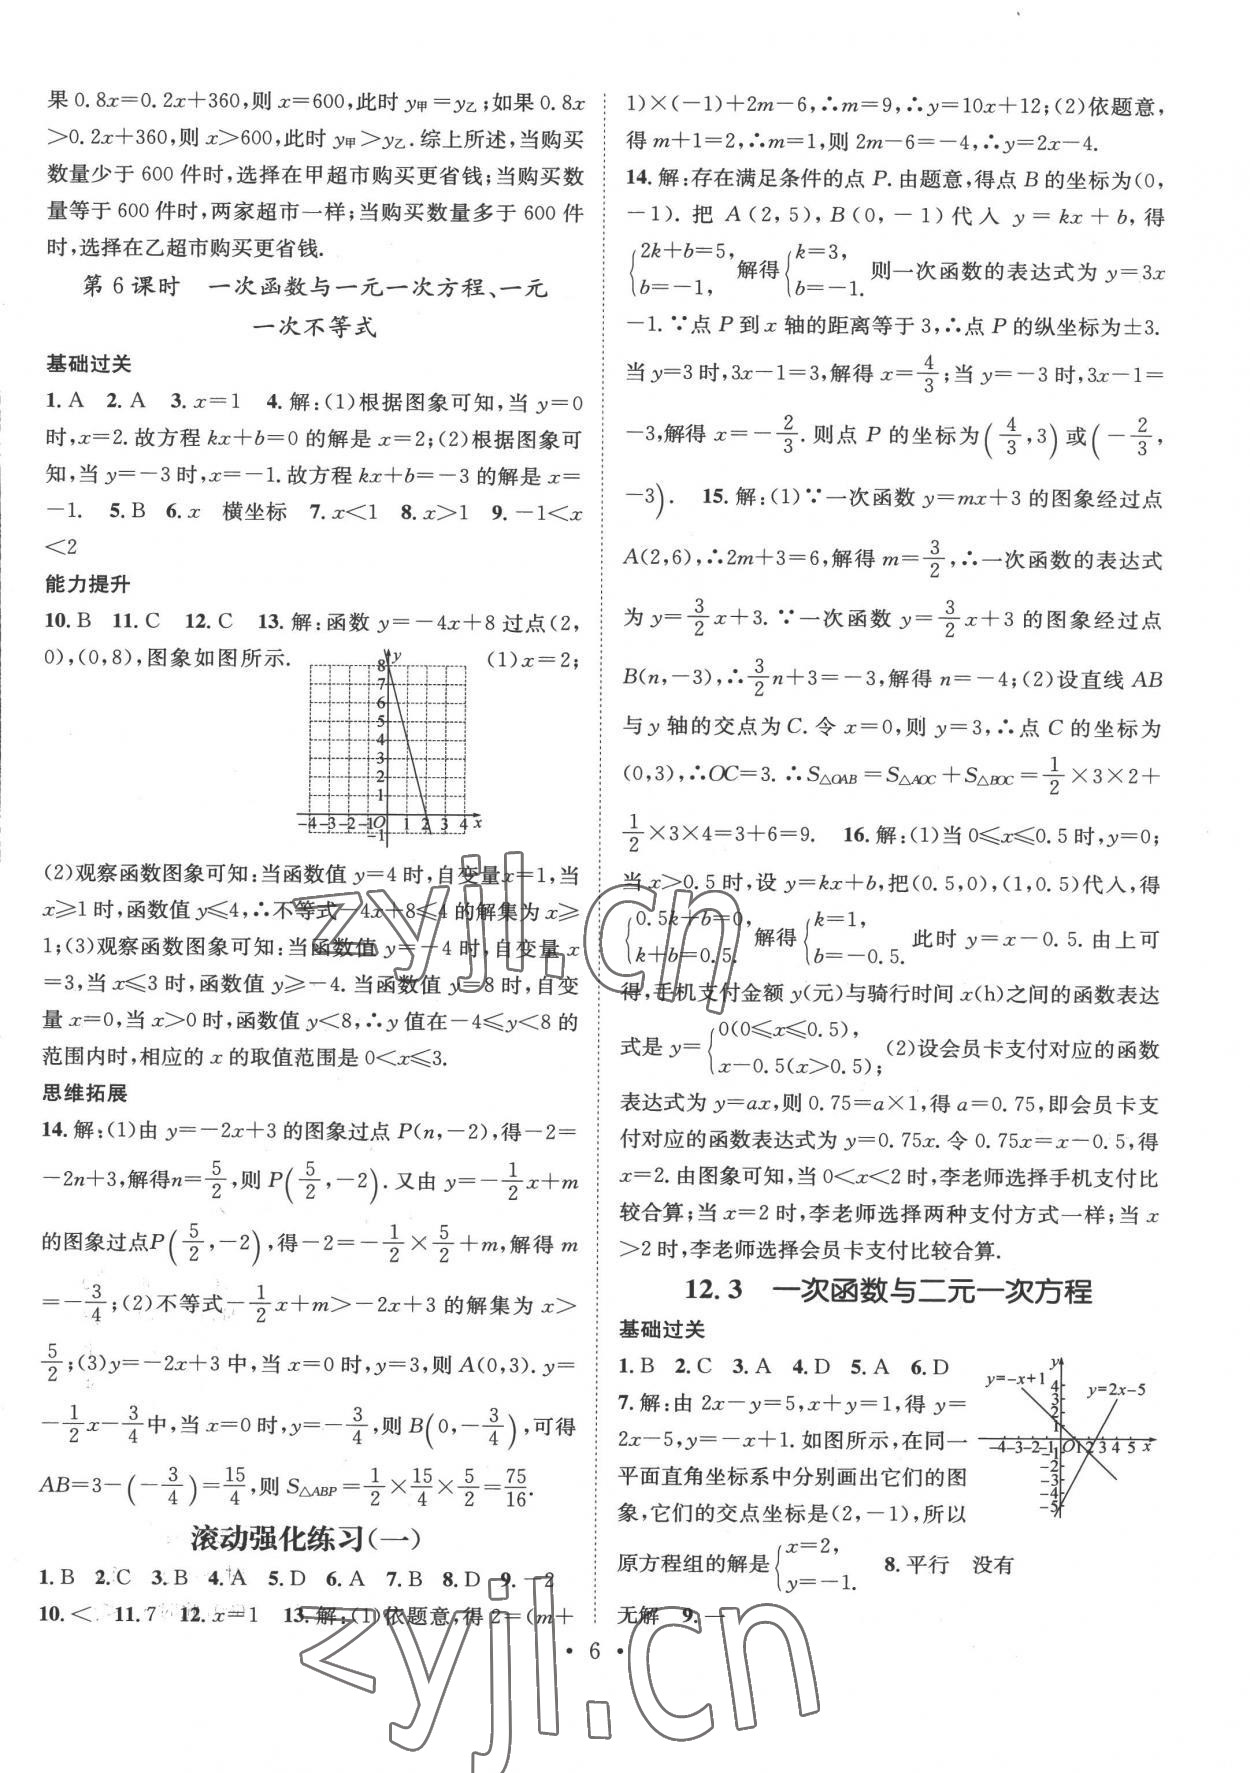 果0.8x=0.2x+360,则x=600,此时y甲=y乙;如果0.8x
>0.2x+360,则x>600,此时y甲>y乙.综上所述,当购买
数量少于600件时,选择在甲超市购买更省钱;当购买数
量等于600件时,两家超市一样;当购买数量多于600件
时,选择在乙超市购买更省钱.
第6课时 一次函数与一元一次方程、一元
一次不等式
基础过关
1. A 2. A 3. x=1 4. 解:(1)根据图象可知,当y=0
时,x=2.故方程kx+b=0的解是x=2;(2)根据图象可
知,当y=-3时,x=-1.故方程kx+b=-3的解是x=
-1. 5. B 6. x 横坐标 7. x<1 8. x>1 9. -1<x
<2
能力提升
10. B 11. C 12. C 13. 解:函数y=-4x+8过点(2,
0),(0,8),图象如图所示. (1)x=2;
y
8
7
6
5
4
3
2
1
-4-3-2-1 O 1 2 3 4 x
-1
(2)观察函数图象可知:当函数值y=4时,自变量x=1,当
x≥1时,函数值y≤4,∴不等式-4x+8≤4的解集为x≥
1;(3)观察函数图象可知:当函数值y=-4时,自变量x
=3,当x≤3时,函数值y≥-4.当函数值y=8时,自变
量x=0,当x>0时,函数值y<8,∴y值在-4≤y<8的
范围内时,相应的x的取值范围是0<x≤3.
思维拓展
14. 解:(1)由y=-2x+3的图象过点P(n,-2),得-2=
-2n+3,解得n=5/2,则P(5/2,-2).又由y=-1/2x+m
的图象过点P(5/2,-2),得-2=-1/2×5/2+m,解得m
=-3/4;(2)不等式-1/2x+m>-2x+3的解集为x>
5/2;(3)y=-2x+3中,当x=0时,y=3,则A(0,3).y=
-1/2x-3/4中,当x=0时,y=-3/4,则B(0,-3/4),可得
AB=3-(-3/4)=15/4,则S△ABP=1/2×15/4×5/2=75/16.
滚动强化练习(一)
1. B 2. C 3. B 4. A 5. D 6. A 7. B 8. D 9. -2
10. < 11. 7 12. x=1 13. 解:(1)依题意,得2=(m+
1)×(-1)+2m-6,∴m=9,∴y=10x+12;(2)依题意,
得m+1=2,∴m=1,则2m-6=-4,∴y=2x-4.
14. 解:存在满足条件的点P.由题意,得点B的坐标为(0,
-1).把A(2,5),B(0,-1)代入y=kx+b,得
{2k+b=5, b=-1, 解得{k=3, b=-1. 则一次函数的表达式为y=3x
-1.∵点P到x轴的距离等于3,∴点P的纵坐标为±3.
当y=3时,3x-1=3,解得x=4/3;当y=-3时,3x-1=
-3,解得x=-2/3.则点P的坐标为(4/3,3)或(-2/3,
-3). 15. 解:(1)∵一次函数y=mx+3的图象经过点
A(2,6),∴2m+3=6,解得m=3/2,∴一次函数的表达式
为y=3/2x+3.∵一次函数y=3/2x+3的图象经过点
B(n,-3),∴3/2n+3=-3,解得n=-4;(2)设直线AB
与y轴的交点为C.令x=0,则y=3,∴点C的坐标为
(0,3),∴OC=3.∴S△OAB=S△AOC+S△BOC=1/2×3×2+
1/2×3×4=3+6=9. 16. 解:(1)当0≤x≤0.5时,y=0;
当x>0.5时,设y=kx+b,把(0.5,0),(1,0.5)代入,得
{0.5k+b=0, k+b=0.5. 解得{k=1, b=-0.5. 此时y=x-0.5.由上可
得,手机支付金额y(元)与骑行时间x(h)之间的函数表达
式是y={0(0≤x≤0.5), x-0.5(x>0.5); (2)设会员卡支付对应的函数
表达式为y=ax,则0.75=a×1,得a=0.75,即会员卡支
付对应的函数表达式为y=0.75x.令0.75x=x-0.5,得
x=2.由图象可知,当0<x<2时,李老师选择手机支付比
较合算;当x=2时,李老师选择两种支付方式一样;当x
>2时,李老师选择会员卡支付比较合算.
12.3 一次函数与二元一次方程
基础过关
1. B 2. C 3. A 4. D 5. A 6. D
7. 解:由2x-y=5,x+y=1,得y=
2x-5,y=-x+1.如图所示,在同一
平面直角坐标系中分别画出它们的图
象,它们的交点坐标是(2,-1),所以
原方程组的解是{x=2, y=-1. 8. 平行 没有
无解 9. 一
y
y=-x+1
y=2x-5
4
3
2
1
-4-3-2-1 O 1 2 3 4 5 x
-1
-2
-3
-4
-5
· 6 ·
zyjl.cn
zyjl.cn